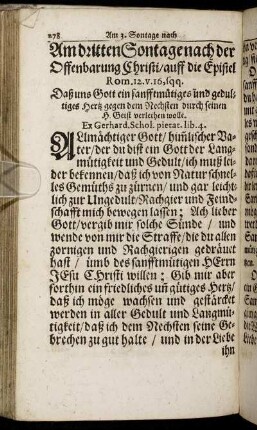 278 Am 3. Sontage nach
Am dritten Sontage nach der
Offenbarung Christi / auff die Epistel
Rom. 12. v. 16. sqq.
Daß uns Gott ein sanfftmütiges und gedul-
tiges Hertz gegen dem Nechsten durch seinen
H. Geist verleihen wolle.
Ex Gerhard. Schol. pietat. lib. 4.
ALlmächtiger Gott / himlischer Va-
ter / der du bist ein Gott der Lang-
mütigkeit und Gedult / ich muß lei-
der bekennen / daß ich von Natur schnel-
les Gemüths zu zürnen / und gar leicht-
lich zur Ungedult / Rachgier und Feind-
schafft mich bewegen lassen; Ach lieber
Gott / vergib mir solche Sünde / und
wende von mir die Straffe / die du allen
zornigen und Rachgierigen gedräuet
hast / umb des sanfftmütigen HErrn
JEsu CHristi willen; Gib mir aber
forthin ein friedliches uñ gütiges Hertz /
daß ich möge wachsen und gestärcket
werden in aller Gedult und Langmü-
tigkeit / daß ich dem Nechsten seine Ge-
brechen zu gut halte / und in der Liebe
ihn